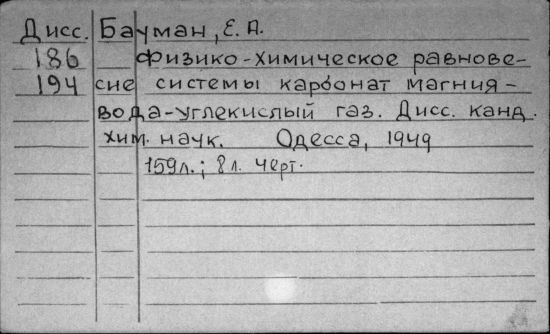 Дисс. Бауман, Е. А.
186 Физико-химическое равнове-
194 сие системы карбонат магния-
вода-углекислый газ. Дисс. канд.
хим. наук. Одесса, 1949
159л.; 8 л. черт.